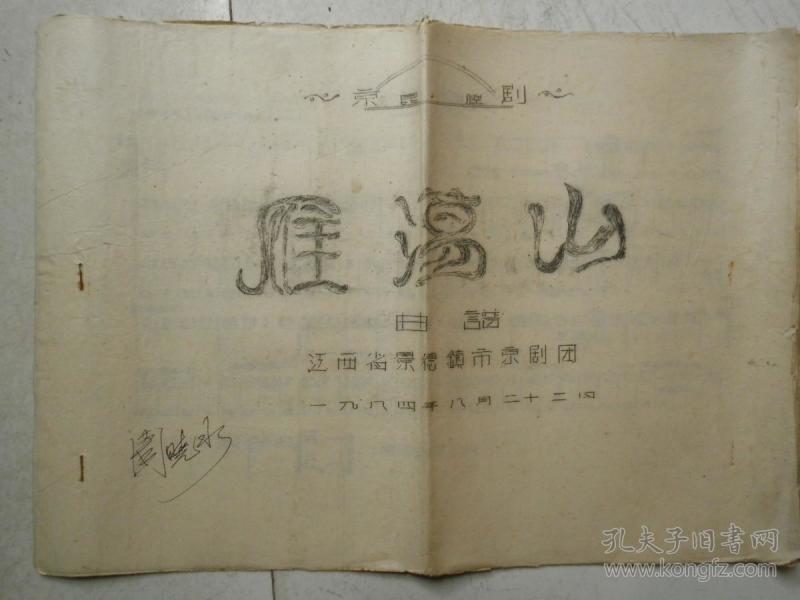 京 剧
雁蕩山
曲譜
江西省景德鎮市京剧团
一九八四年八月二十二日
周晓冰
孔夫子旧书网
www.kongfz.com